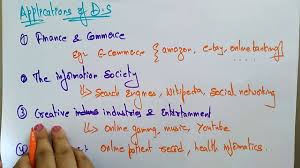 Applications of D.S
① Finance & Commerce
Eg: E-commerce { amazon, e-bay, online banking }
② The information Society
↳ Search Engines, Wikipedia, Social networking
③ Creative industries & Entertainment
↳ online gaming, music, Youtube
online patient record, health informatics.